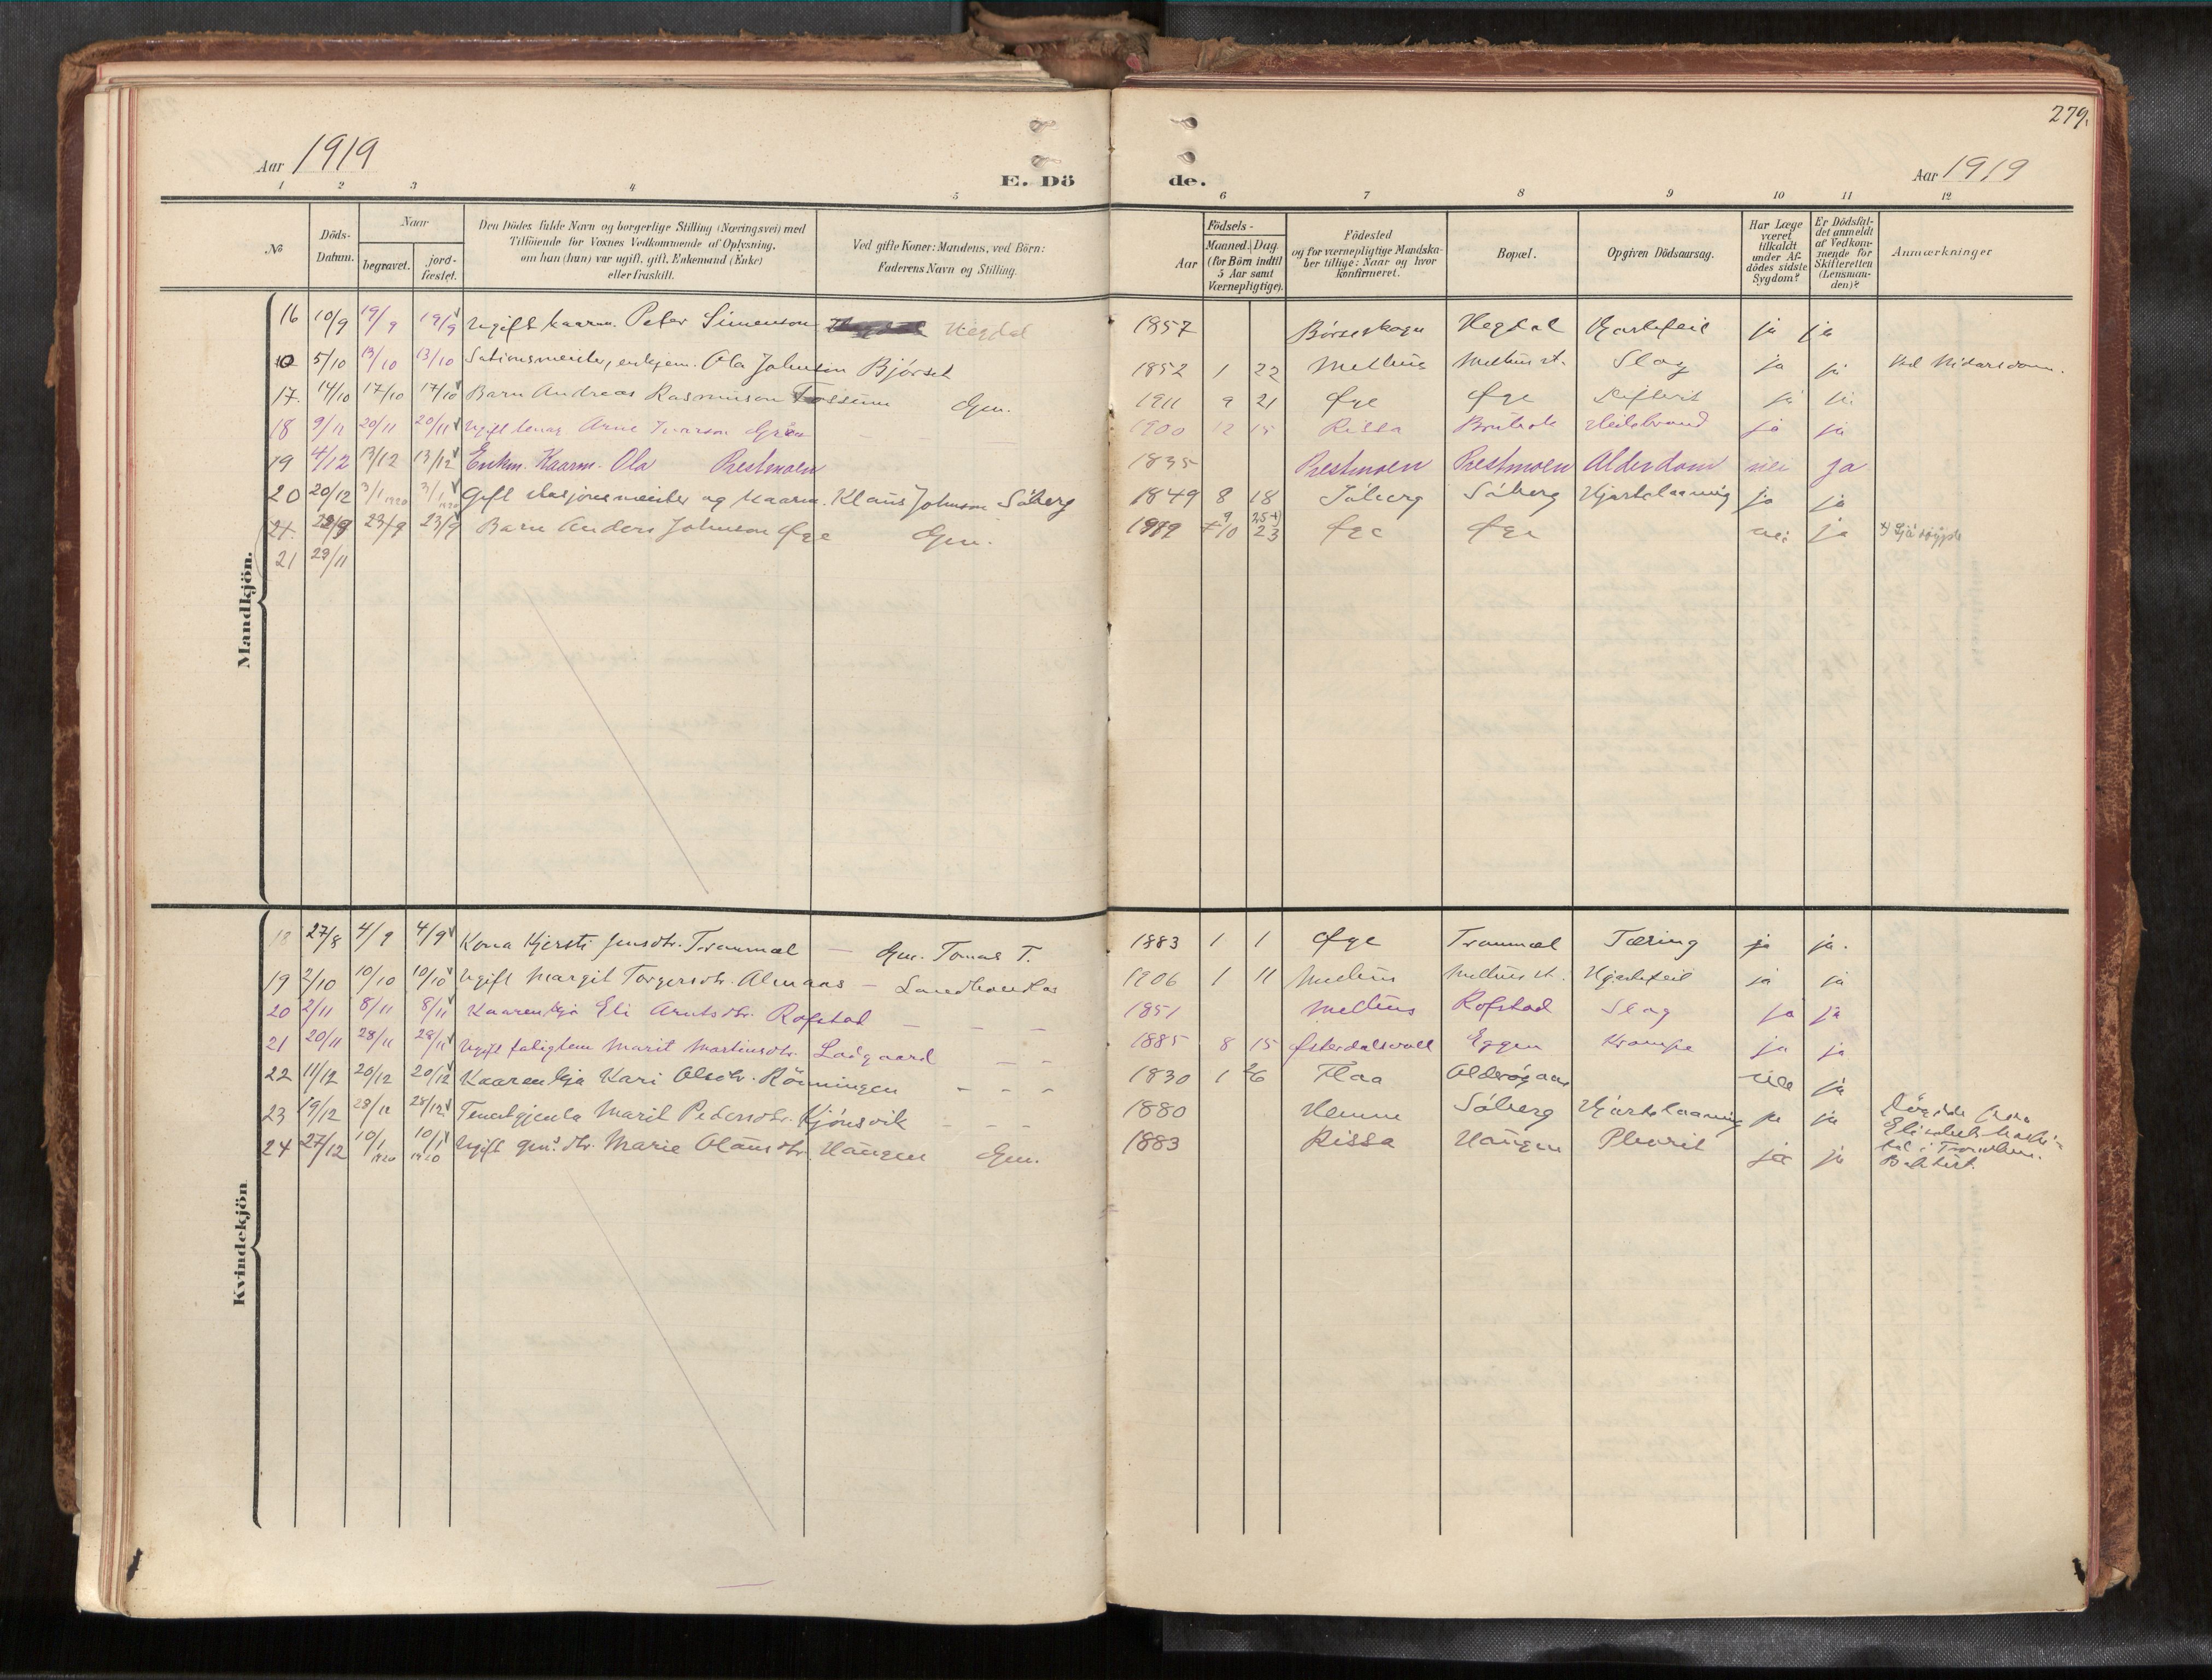 279.
Aar 1919
E. Dö
de.
Aar 1919
1 2 3 4 5 6 7 8 9 10 11 12
№
Döds-Datum.
Naar
begravet.
jord-fæstet.
Den Dödes fulde Navn og borgerlige Stilling (Næringsvei) med
Tilföiende for Voxnes Vedkommende af Oplysning,
om han (hun) var ugift, gift, Enkemand (Enke)
eller fraskilt.
Ved gifte Koner: Mandens, ved Börn:
Faderens Navn og Stilling.
Födsels-
Aar
Maaned. Dag.
(for Börn indtil
5 Aar samt
Værnepligtige).
Födested
og for værnepligtige Mandska-
ber tillige: Naar og hvor
konfirmeret.
Bopæl.
Opgiven Dödsaarsag.
Har Læge
været
tilkaldt
under Af-
dödes sidste
Sygdom?
Er Dödsfal-
det anmeldt
af Vedkom-
mende for
Skifteretten
(Lensman-
den)?
Anmærkninger
Mandkjön.
16 10/9 19/9 19/9 Ugift kaarm. Peter Simenson Hegdal 1857 Börseskogn Hegdal Hjartefeil ja ja
5/10 13/10 13/10 Stationsmeister, enkjem. Ola Johnsen Björset 1852 1 22 Melhus Melhus st. Slag ja ja Ved Nidarosdom.
17. 14/10 17/10 17/10 Barn Andreas Rasmuson Fossum Gm. 1911 9 21 Øye Øye ja ja
18 9/11 20/11 20/11 Ugift tenar Arne Ivarson Grøn 1900 12 15 Rissa ja ja
19 4/12 13/12 13/12 Enkm. Kaarm. Ola Prestmoen 1835 Prestmoen Prestmoen Alderdom nei ja
20 20/12 3/1 1920 3/1 1920 Gift stasjonsmeister og kaarm. Klaus Johnson Söberg 1849 8 18 Söberg Söberg Hjartelaaming ja ja
21. 23/9 23/9 Barn Anders Johnson Øye Gm. 1919 9 25 +) 10 23 Øye Øye nei ja
21 29/11
Kvindekjön
18 27/8 4/9 4/9 Kona Kjersti Jensdtr. Tranmæl — Gm. Tomas T. 1883 1 1 Øye Tranmæl Tæring ja ja.
19 2/10 10/10 10/10 Ugift Margit Torgersdtr. Almaas — Landhandlar 1906 1 11 Melhus Melhus st. Hjartefeil ja ja
20 2/11 8/11 8/11 Kaarenkja Eli Arntsdtr. Rofstad — — — 1851 Melhus Rofstad Slag ja ja
21 20/11 28/11 28/11 Ugift fatiglem Marit Martinsdtr. Ladgaard — — 1885 8 15 Østerdalsvoll Eggen Krampe ja ja
22 11/12 20/12 20/12 Kaarenkja Kari Olsdtr. Rönningen — — — 1830 1 26 Flaa ja
23 19/12 28/12 28/12 Tenestgjenta Marit Pedersdtr. Kjönsvik — — — 1880 Hemne Söberg Hjartelaaming ja ja
24 27/12 10/1 1920 10/1 1920 Ugift gm.s dtr. Marie Olausdtr. Haugen Gm. 1883 Rissa Haugen Pleurit ja ja